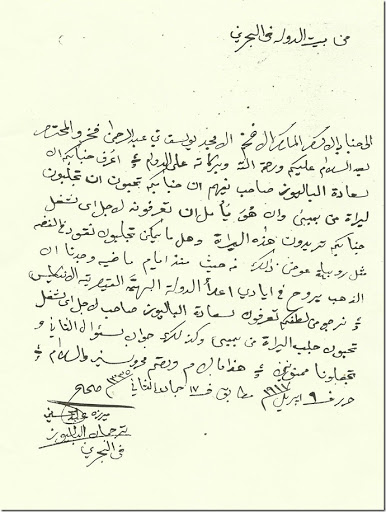 من بيت الدوله في البحرين
الى جناب الاكرم الافخم الامجد يوسف بن عبدالرحمن فخرو المحترم
بعد السلام عليكم ورحمة الله وبركاته على الدوام اعرف جنابكم ان
سعادة الباليوز صاحب فهم ان جنابكم تحبون ان تجلبون
ليرات من بمبئ وان هو يأمل ان تعرفونه لاجل اي شغل
جنابكم تريدون هذه الليرات وهل ما يمكن تجلبون نقود فضه
مثل روبيه عوض ذلك حيث منذ ايام ماضيه وجدنا ان
الذهب يروح في ايادي اعداء الدولة البهية القيصرية الانكليس
نرجو من لطفكم تعرفون سعادة الباليوز صاحب لاجل اي شغل
تحبون جلب الليرات من بمبئ وكذلك جواب لسؤال الثاني و
تجعلونا ممنونين هذا ما لزم ودمتم محروسين والسلام
حرر في ٩ ابريل ١٩١٧م مطابق في ١٧ جمادى الثاني ١٣٣٥ صحيح
ميرزه
ترجمان الباليوز
في البحرين